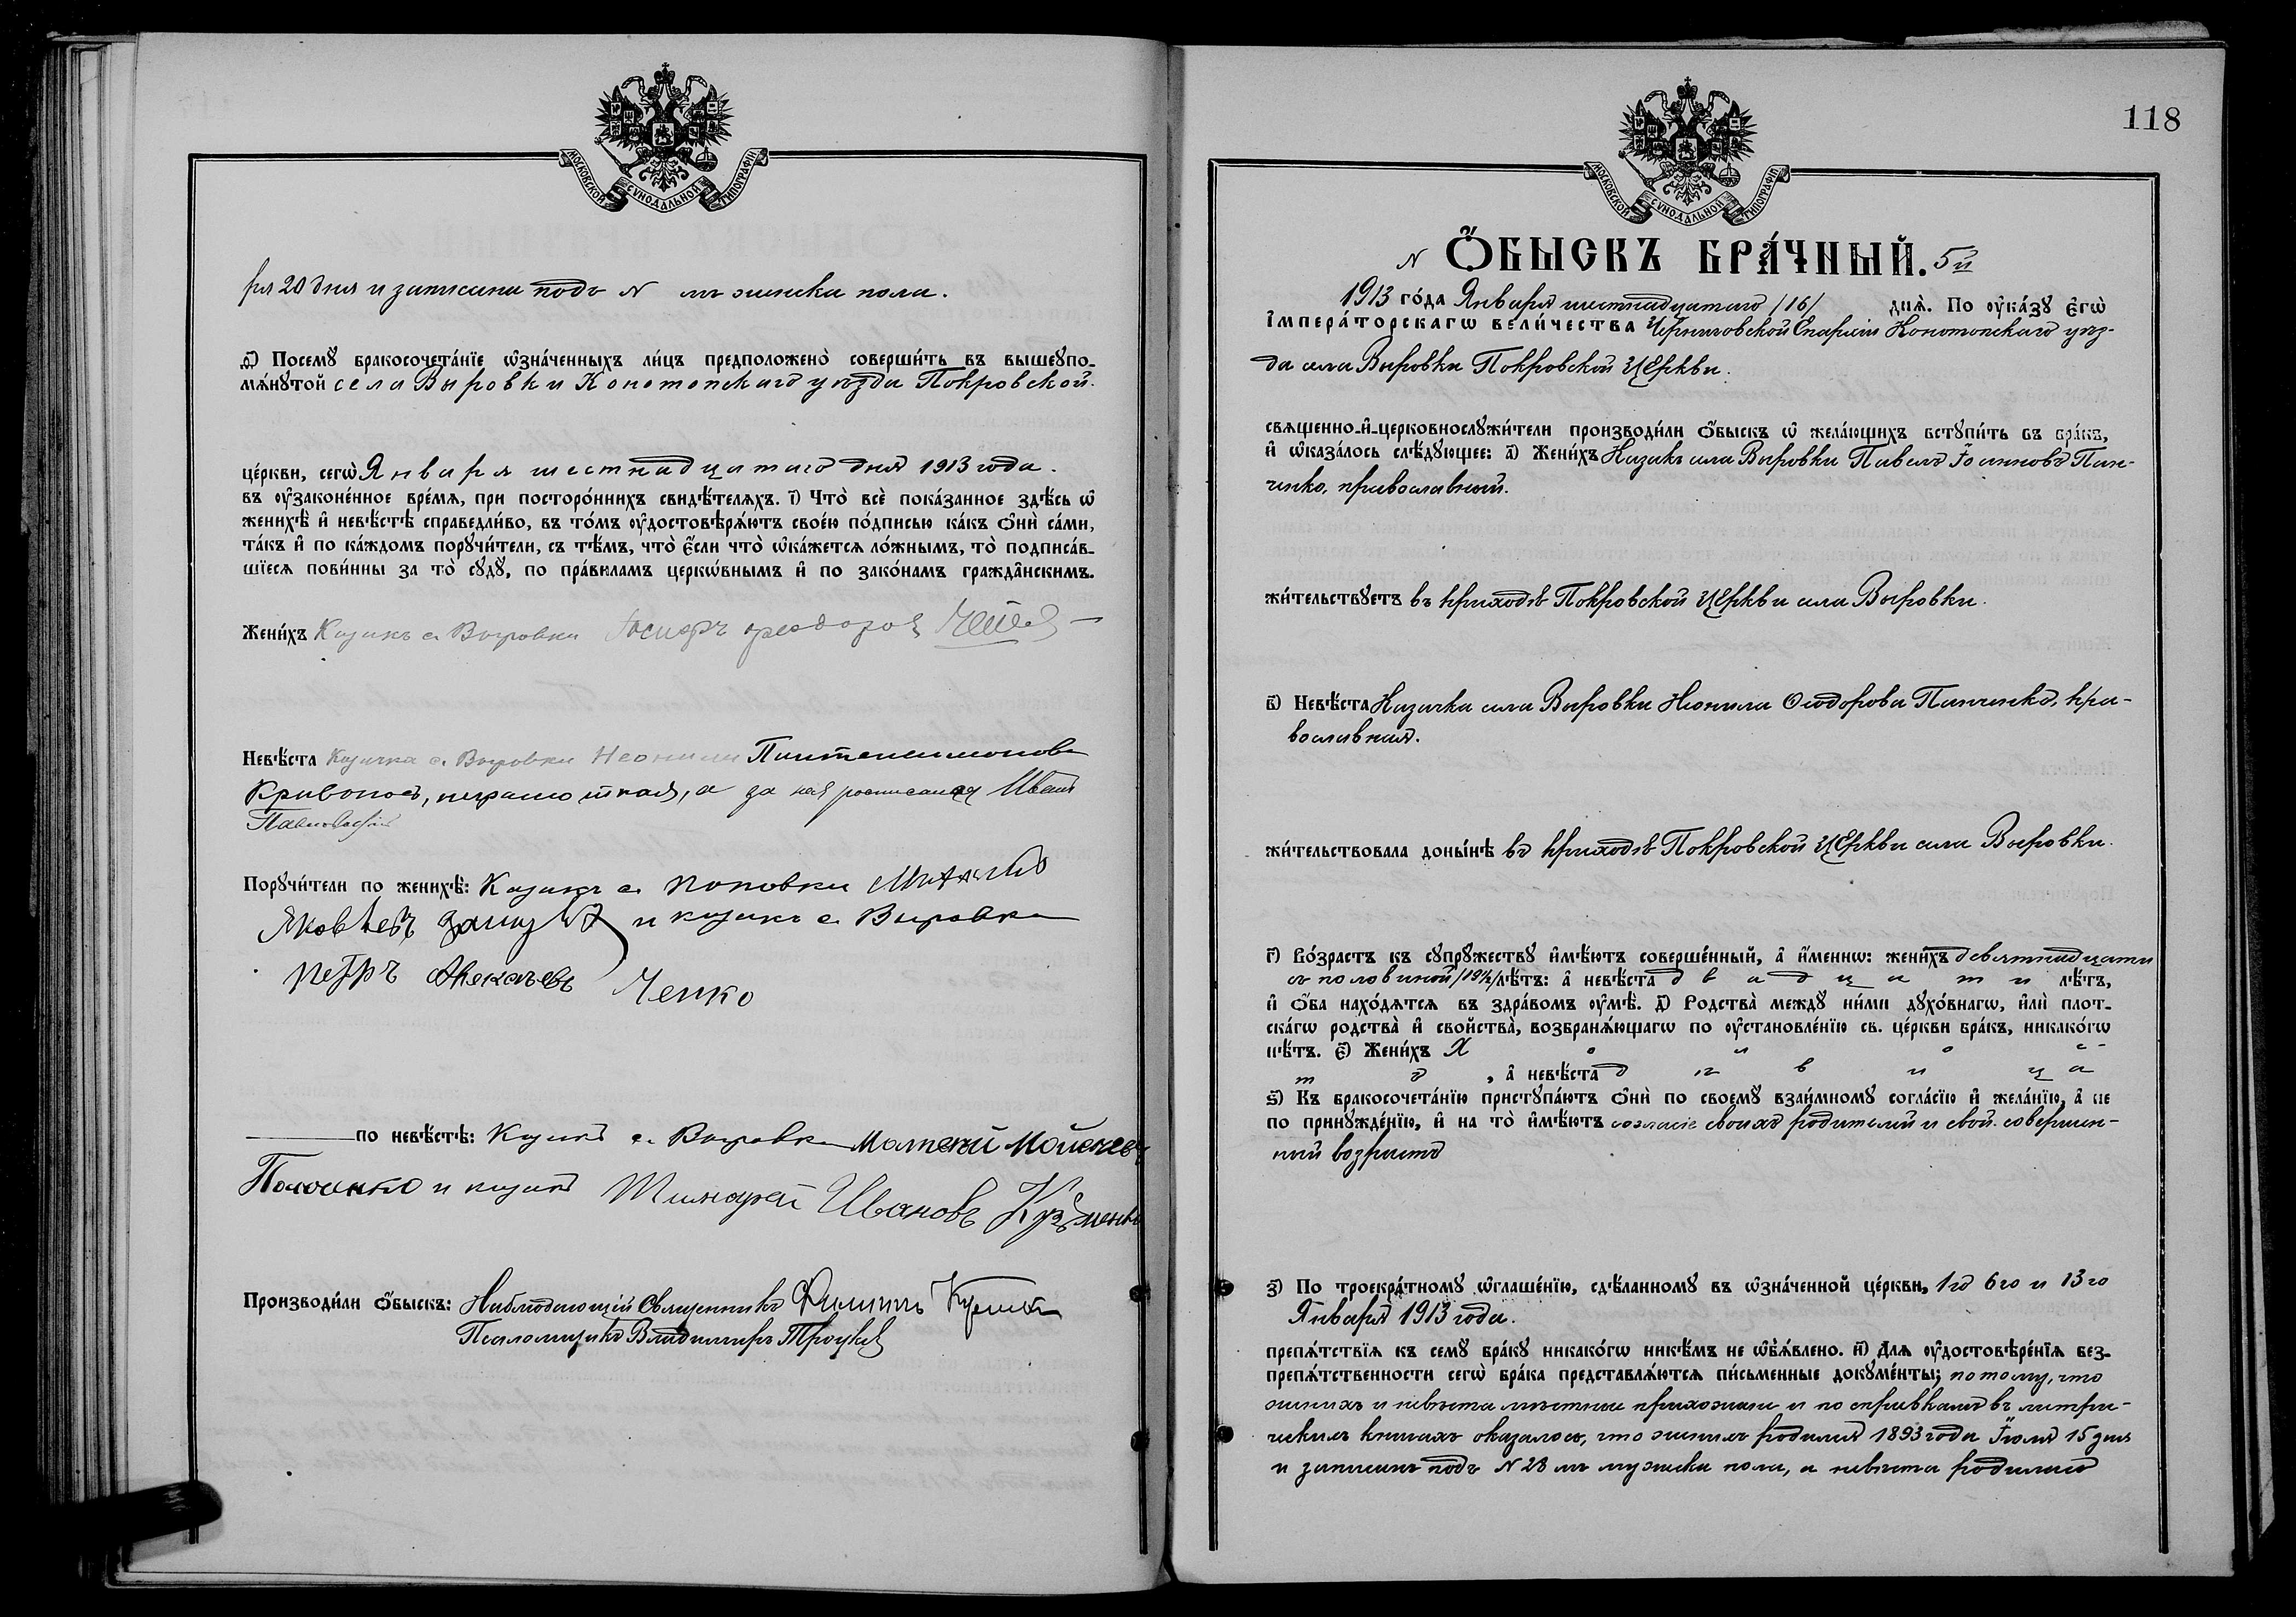 МОСКОВСКОЙ СѴНОДАЛЬНОЙ ТИПОГРАФІИ
ря 20 дня и записана подъ N мъ женска пола.
ѳ҃) Посемꙋ̀ бракосочета́нїе ѡ҆зна́ченныхъ ли́цъ предположено̀ соверши́ть въ вышеꙋпо-
мѧ́нꙋтой села Выровки Конотопскаго уѣзда Покровской.
це́ркви, сегѡ̀ Января шестнадцатаго дня 1913 года.
въ ᲂу҆законе́нное вре́мѧ, при посторо́ннихъ свидѣ́телѧхъ. і҃) Что̀ всѐ пока́занное здѣ́сь ѡ҆
женихѣ̀ и҆ невѣ́стѣ справедли́во, въ то́мъ ᲂу҆достовѣрѧ́ютъ свое́ю по́дписью ка́къ ѻ҆нѝ са́ми,
та́къ и҆ по ка́ждомъ порꙋчи́тели, съ тѣ́мъ, что̀ є҆́сли что̀ ѡ҆ка́жетсѧ ло́жнымъ, то̀ подписа́в-
шїесѧ пови́нны за то̀ сꙋдꙋ̀, по пра́виламъ церко́внымъ и҆ по зако́намъ гражда́нскимъ.
Жени́хъ Казакъ с. Выровки Іосифъ Феодоров
Невѣ́ста Казачка с. Выровки Неонила Пантелеимонова
Кривонос, неграмотная, а за нея росписался Иван
Порꙋчи́тели по женихѣ̀: Казакъ с. Поповки Михаилъ
Яковлевъ и казакъ с. Выровки
Петръ Алексѣевъ Ченко
по невѣ́стѣ: Казакъ с. Выровки Матвѣй Моисеев
и казакъ Тимофей Ивановъ Кузьменко
Производи́ли ѻ҆́быскъ: Наблюдающій Священникъ Филиппъ
Псаломщикъ Владимиръ Троцкій
118
МОСКОВСКОЙ СѴНОДАЛЬНОЙ ТИПОГРАФІИ
N Ѻ҆́БЫСКЪ БРА́ЧНЫЙ. 5й
1913 го́да Января шестнадцатаго /16/ днѧ̀. По ᲂу҆ка́зꙋ є҆гѡ̀
і҆мпера́торскагѡ вели́чества Черниговской Епархіи Конотопскаго уѣз-
да села Выровки Покровской Церкви.
свѧщенно-и҆-церковнослꙋжи́тели производи́ли ѻ҆́быскъ ѡ҆ жела́ющихъ встꙋпи́ть въ бра́къ,
и҆ ѡ҆каза́лось слѣ́дꙋющее: а҃) Жени́хъ Казакъ села Выровки Павелъ Іоанновъ Пан-
ченко, православный.
жи́тельствꙋетъ въ приходѣ Покровской Церкви села Выровки.
в҃) Невѣ́ста Казачка села Выровки Неонила Ѳеодорова Панченко, пра-
вославная.
жи́тельствовала доны́нѣ въ приходѣ Покровской Церкви села Выровки.
г҃) Во́зрастъ къ сꙋпрꙋ́жествꙋ и҆мѣ́ютъ соверше́нный, а҆ и҆́меннѡ: жени́хъ девятнадцати
съ половиной /19½/ лѣ́тъ: а҆ невѣ́ста двадцати лѣ́тъ,
и҆ ѻ҆́ба нахо́дѧтсѧ въ здра́вомъ ᲂу҆мѣ̀. д҃) Родства̀ междꙋ̀ ни́ми дꙋхо́внагѡ, и҆лѝ плот-
ска́гѡ родства̀ и҆ сво́йства̀, возбранѧ́ющагѡ по ᲂу҆становле́нїю св. це́ркви бра́къ, никако́гѡ
нѣ́тъ. є҃) Жени́хъ Холос-
тъ, а҆ невѣ́ста дѣвица
ѕ҃) Къ бракосочета́нїю пристꙋпа́ютъ ѻ҆нѝ по своемꙋ̀ взаи́мномꙋ согла́сїю и҆ жела́нїю, а҆ не
по принꙋжде́нїю, и҆ на то̀ и҆мѣ́ютъ согласіе своихъ родителей и свой совершен-
ный возрастъ
з҃) По троекра́тномꙋ ѡ҆глаше́нїю, сдѣ́ланномꙋ въ ѡ҆зна́ченной це́ркви, 1го 6го и 13го
Января 1913 года.
препѧ́тствїѧ къ семꙋ̀ бра́кꙋ никако́гѡ никѣ́мъ не ѡ҆б̾ѧ́влено. и҃) Длѧ ᲂу҆достовѣре́нїѧ без-
препѧ́тственности сегѡ̀ бра́ка представлѧ́ютсѧ пи́сьменные докꙋме́нты; потому, что
женихъ и невѣста мѣстные прихожане и по справкамъ въ метри-
ческихъ книгахъ оказалось, что женихъ родился 1893 года Іюля 15 дня
и записанъ подъ N 28 мъ мужска пола, а невѣста родилась